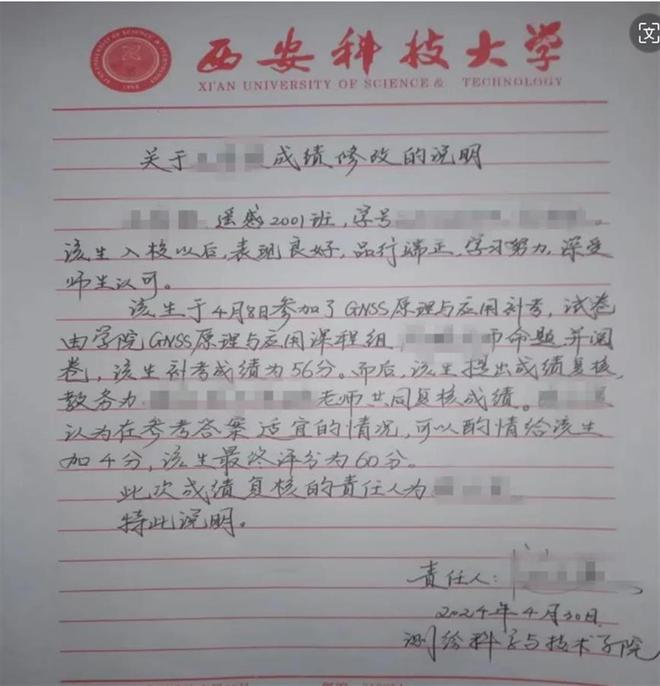 西安科技大学
XI'AN UNIVERSITY OF SCIENCE & TECHNOLOGY
关于 成绩修改的说明
遥感2001班，学号
该生入校以后，表现良好，品行端正，学习努力，深受
师生认可。
该生于4月8日参加了GNSS原理与应用补考，试卷
由学院GNSS原理与应用课程组 师命题并阅
卷，该生补考成绩为56分。而后，该生提出成绩复核，
教务为 老师共同复核成绩。
认为在参考答案适宜的情况，可以酌情给该生
加4分，该生最终评分为60分。
此次成绩复核的责任人为
特此说明。
责任人：
2024年4月30日
测绘科学与技术学院